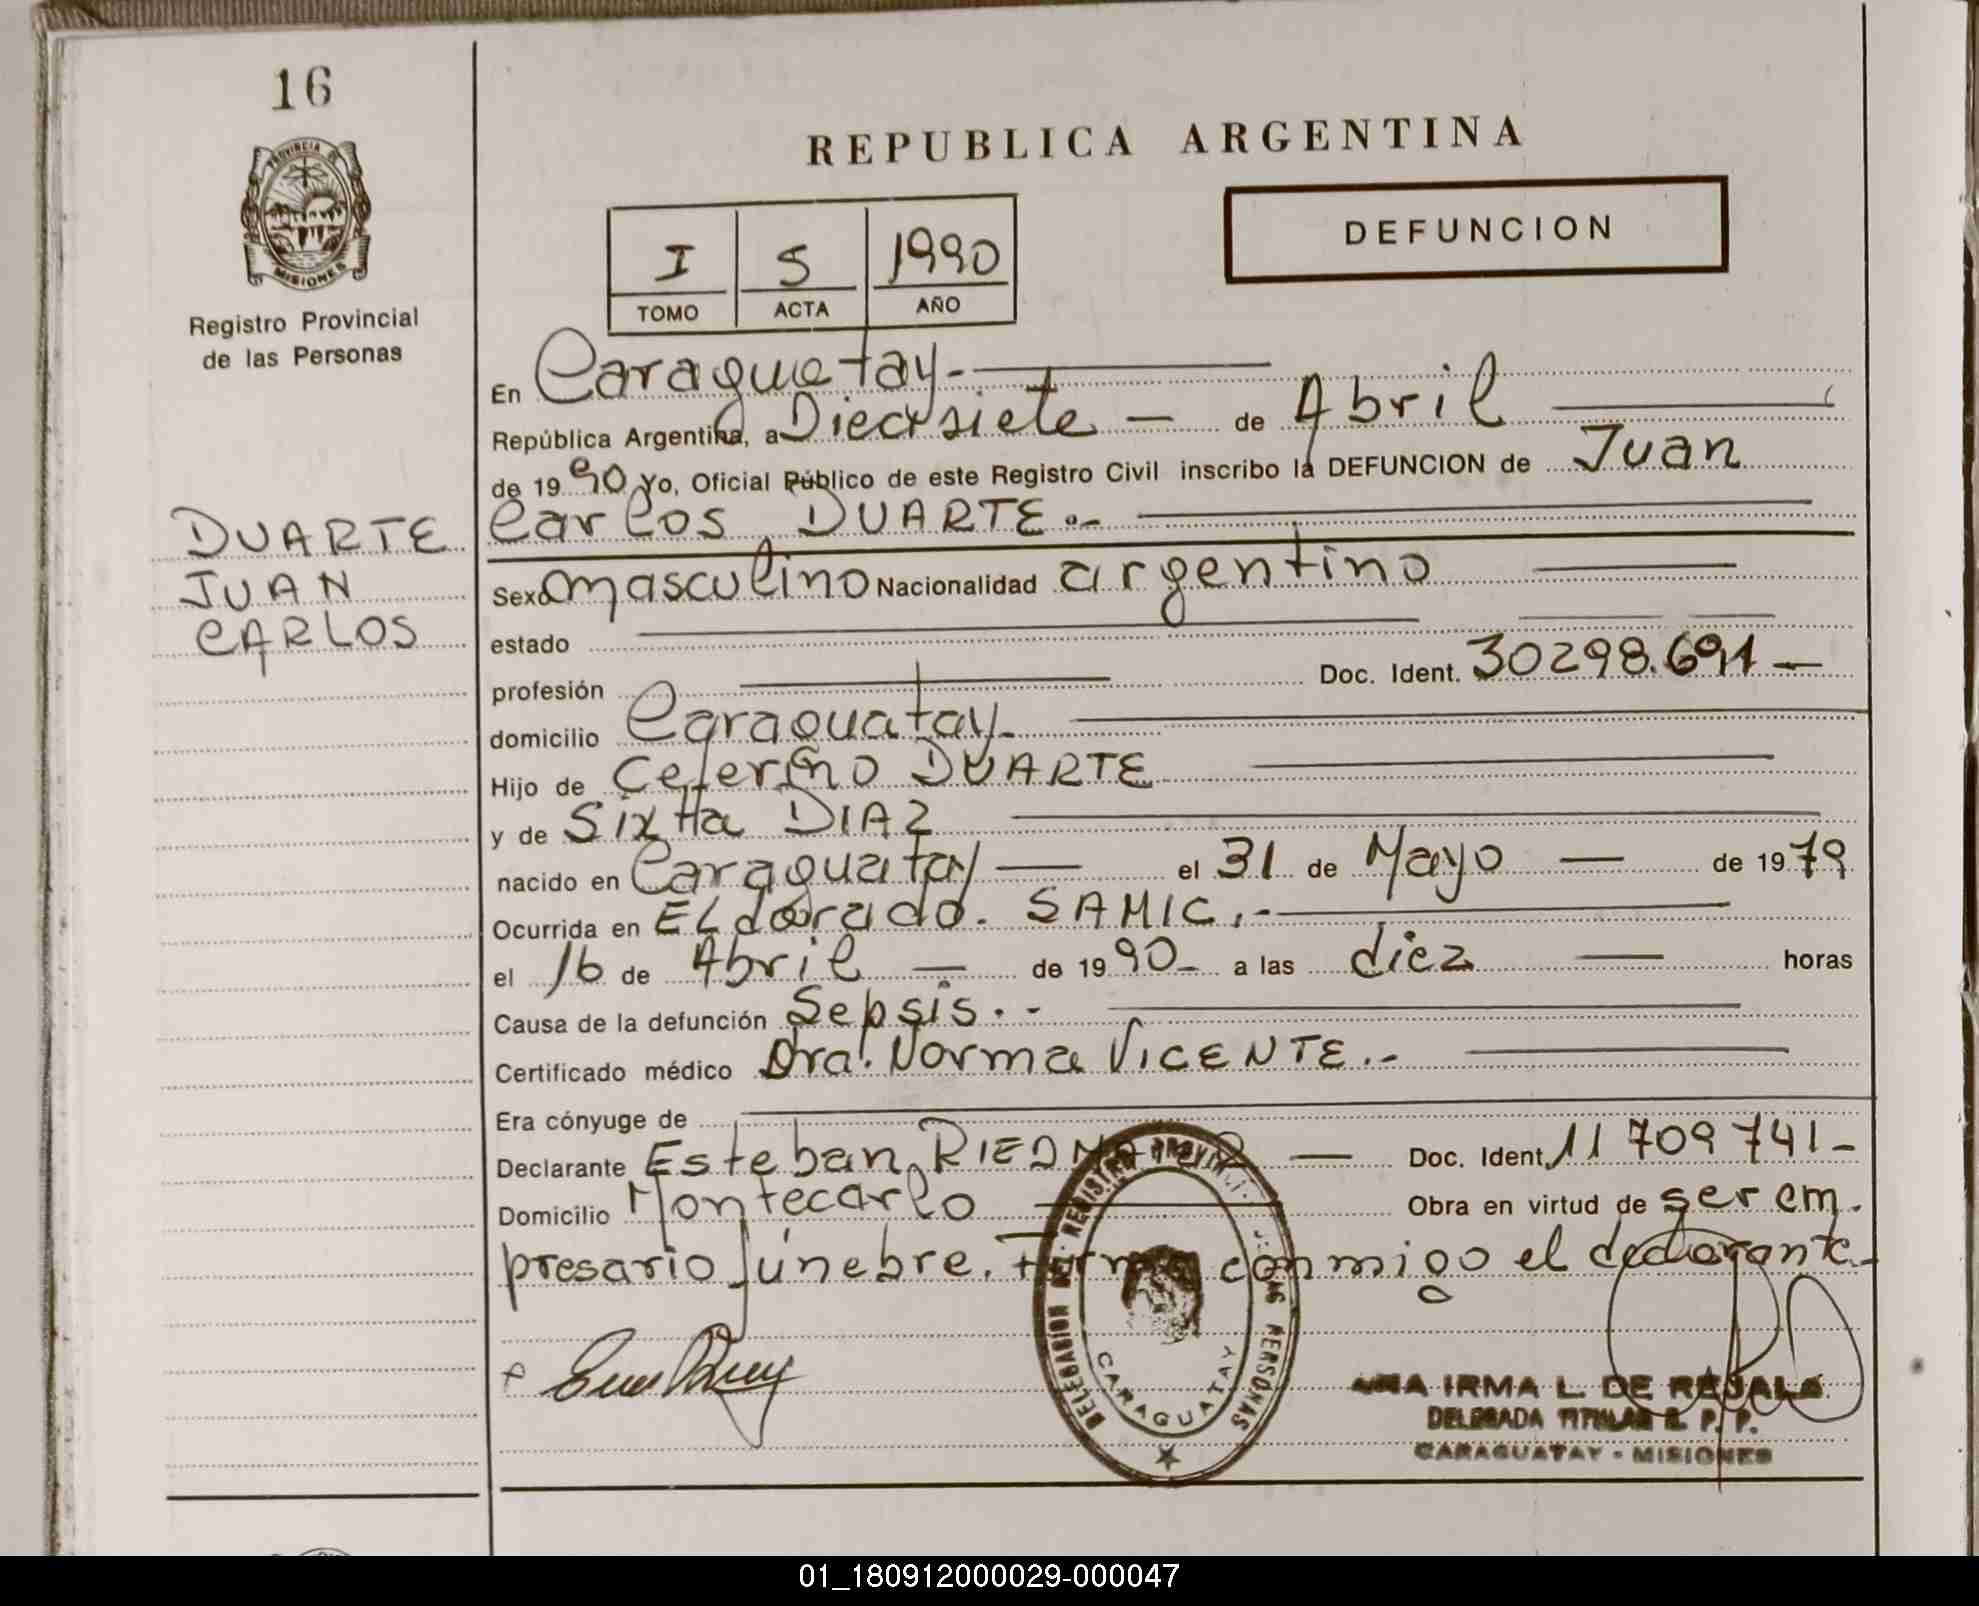 16
PROVINCIA DE
MISIONES
Registro Provincial
de las Personas
DUARTE
JUAN
CARLOS
REPUBLICA ARGENTINA
I 5 1990
TOMO ACTA AÑO
DEFUNCION
En Caraguatay.-
República Argentina, a Diecisiete — de Abril
de 1990 Yo, Oficial Público de este Registro Civil inscribo la DEFUNCION de Juan
Carlos DUARTE.-
Sexo masculino Nacionalidad argentino
estado
profesión Doc. Ident. 30298.691 —
domicilio Caraguatay.
Hijo de Ceferino DUARTE
y de Sixtta DIAZ
nacido en Caraguatay — el 31 de Mayo — de 1979
Ocurrida en ELdorado. SAMIC.-
el 16 de Abril — de 1990 - a las diez — horas
Causa de la defunción Sepsis.-
Certificado médico Dra. Norma VICENTE.-
Era cónyuge de
Declarante Esteban — Doc. Ident. 11709741-
Domicilio Montecarlo Obra en virtud de ser em-
presario fúnebre. Firma conmigo el declarante-
DELEGACION DEL REGISTRO PROVINCIAL DE LAS PERSONAS
CARAGUATAY
ANA IRMA L. DE
DELEGADA TITULAR R. P. P.
CARAGUATAY - MISIONES
01_180912000029-000047